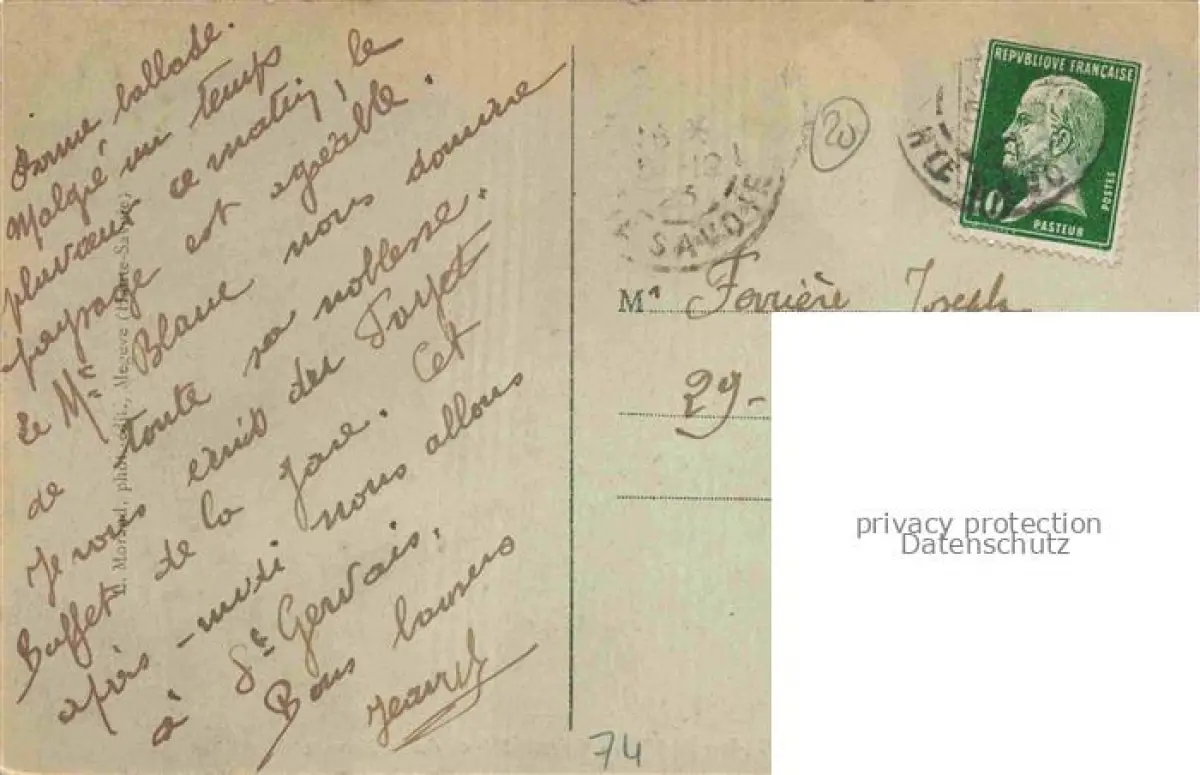 Bonne ballade.
Malgré un temps
pluvieux ce matin, le
paysage est agréable.
Le Mt Blanc nous domine
de toute sa noblesse.
Je vous écris du Fayet
Buffet de la Gare. Cet
après-midi nous allons
à St Gervais.
Bons baisers
E. Morand, phot.-édit., Megève (Haute-Savoie)
SAVOIE
20
REPVBLIQUE FRANÇAISE
10
PASTEUR
POSTES
Mr Ferrière Joseph
29-
privacy protection
Datenschutz
74